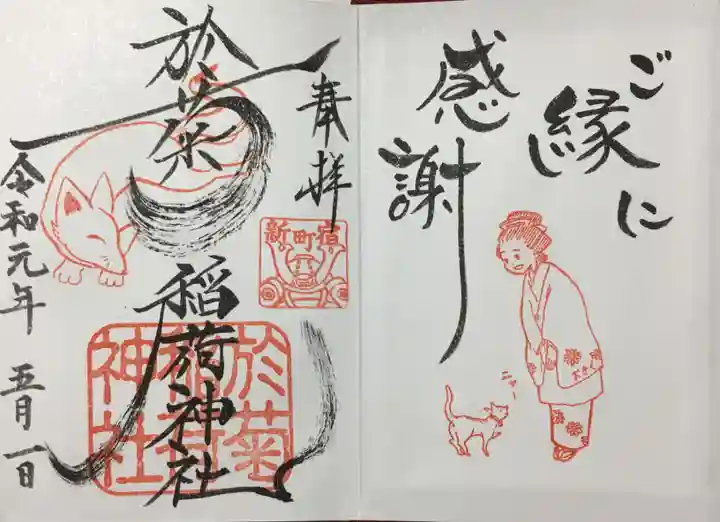 ご縁に
感謝
ニャー
奉拝
新町宿
於菊
稲荷神社
於菊
稲荷
神社
令和元年 五月一日